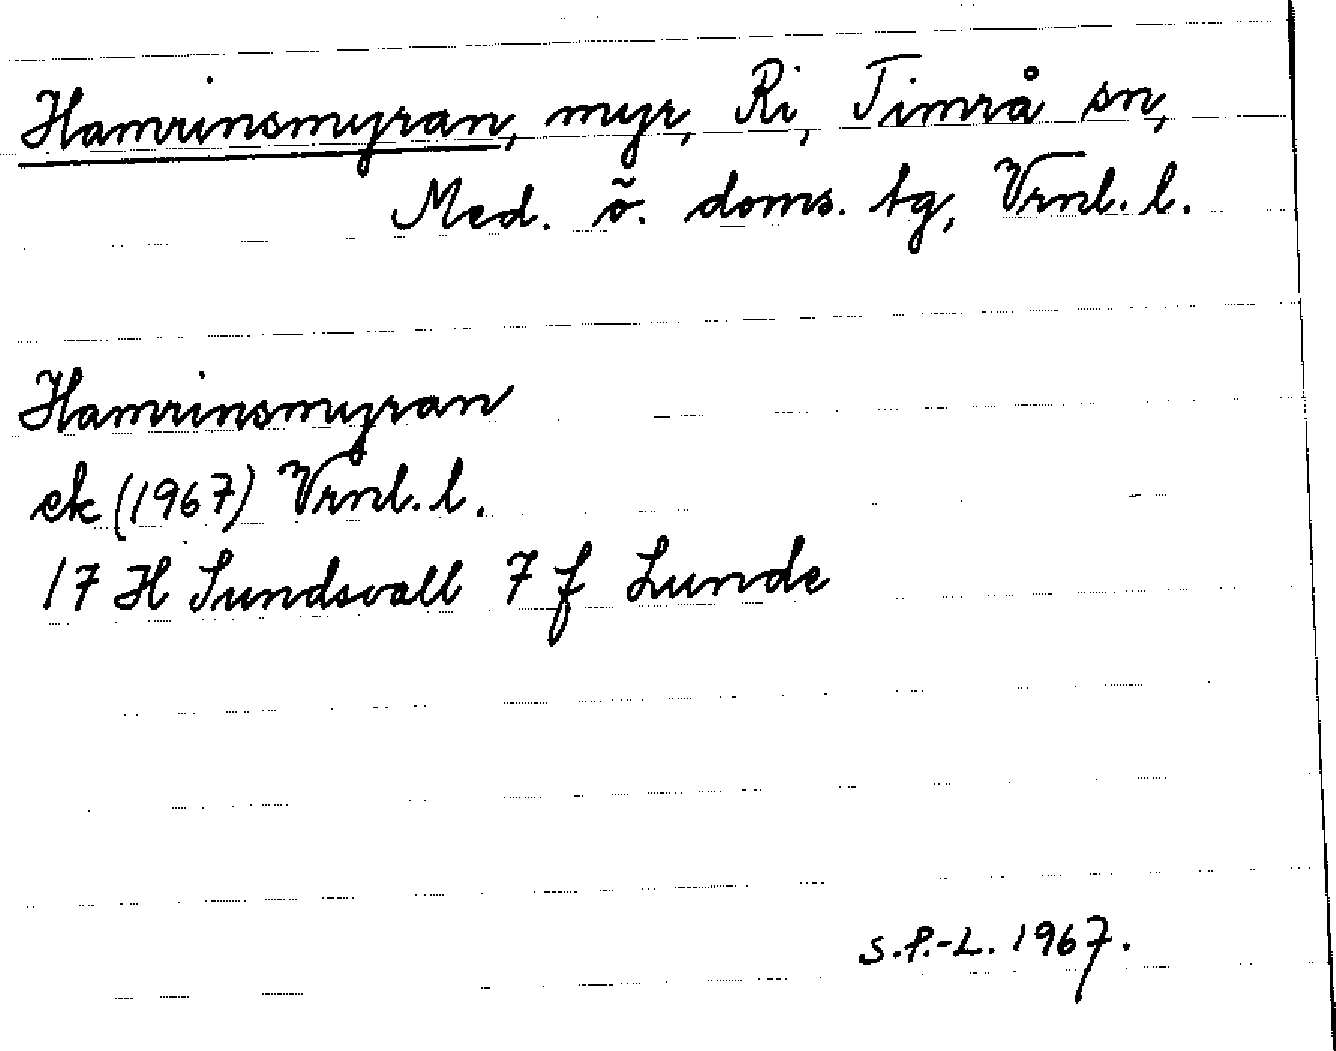 Hamrinsmyran, myr, Ri, Timrå sn,
Med. ö. doms. tg, Vrnl. l.
Hamrinsmyran
ek (1967) Vrnl. l.
17 H Sundsvall 7 f Lunde
S.P.-L. 1967.